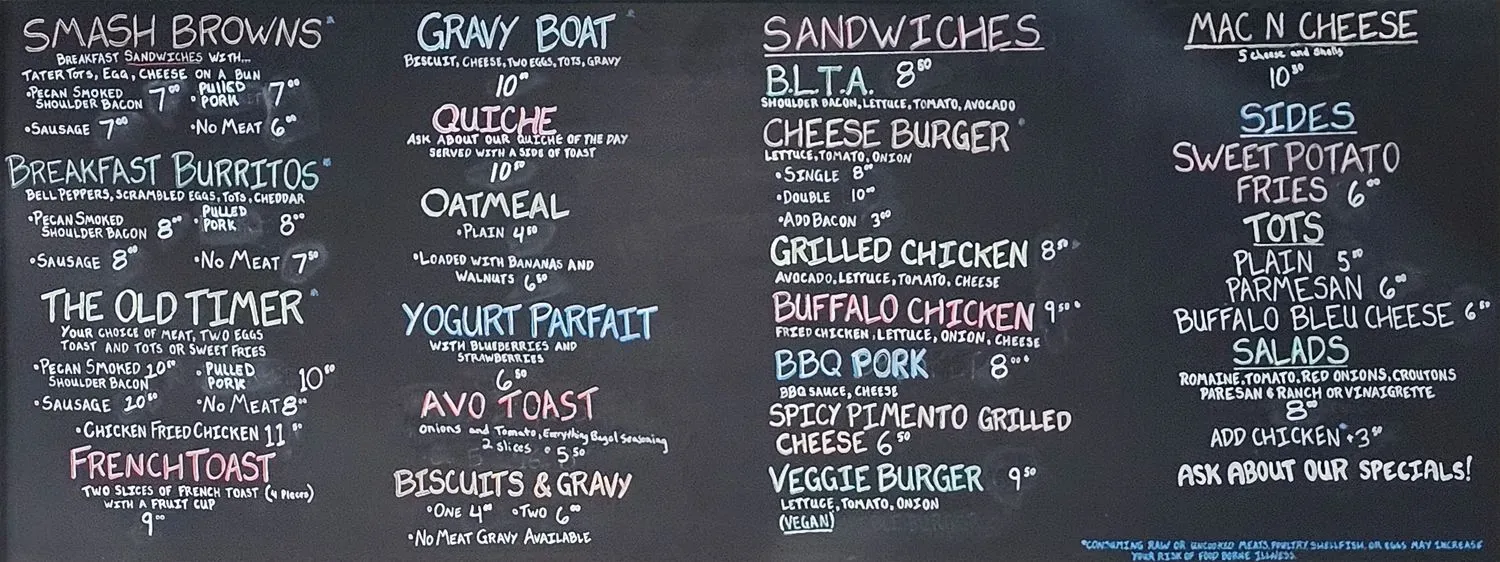 SMASH BROWNS*
BREAKFAST SANDWICHES WITH...
TATER TOTS, EGG, CHEESE ON A BUN
•PECAN SMOKED SHOULDER BACON 7⁰⁰
•PULLED PORK 7⁰⁰
•SAUSAGE 7⁰⁰
•NO MEAT 6⁰⁰
BREAKFAST BURRITOS*
BELL PEPPERS, SCRAMBLED EGGS, TOTS, CHEDDAR
•PECAN SMOKED SHOULDER BACON 8⁰⁰
•PULLED PORK 8⁰⁰
•SAUSAGE 8⁰⁰
•NO MEAT 7⁵⁰
THE OLD TIMER*
YOUR CHOICE OF MEAT, TWO EGGS
TOAST AND TOTS OR SWEET FRIES
•PECAN SMOKED SHOULDER BACON 10⁵⁰
•PULLED PORK 10⁵⁰
•SAUSAGE 10⁵⁰
•NO MEAT 8⁰⁰
•CHICKEN FRIED CHICKEN 11⁵⁰
FRENCH TOAST
TWO SLICES OF FRENCH TOAST (4 pieces)
WITH A FRUIT CUP
9⁰⁰
GRAVY BOAT*
BISCUIT, CHEESE, TWO EGGS, TOTS, GRAVY
10⁰⁰
QUICHE
ASK ABOUT OUR QUICHE OF THE DAY
SERVED WITH A SIDE OF TOAST
10⁵⁰
OATMEAL
•PLAIN 4⁵⁰
•LOADED WITH BANANAS AND
WALNUTS 6⁵⁰
YOGURT PARFAIT
WITH BLUEBERRIES AND
STRAWBERRIES
6⁵⁰
AVO TOAST
Onions and Tomato, Everything Bagel Seasoning
2 slices • 5.50
BISCUITS & GRAVY
•ONE 4⁰⁰ •TWO 6⁰⁰
•NO MEAT GRAVY AVAILABLE
SANDWICHES
B.L.T.A. 8⁵⁰
SHOULDER BACON, LETTUCE, TOMATO, AVOCADO
CHEESE BURGER*
LETTUCE, TOMATO, ONION
•SINGLE 8⁰⁰
•DOUBLE 10⁰⁰
•ADD BACON 3⁰⁰
GRILLED CHICKEN 8⁵⁰
AVOCADO, LETTUCE, TOMATO, CHEESE
BUFFALO CHICKEN 9⁵⁰
FRIED CHICKEN, LETTUCE, ONION, CHEESE
BBQ PORK 8⁰⁰
BBQ SAUCE, CHEESE
SPICY PIMENTO GRILLED
CHEESE 6⁵⁰
VEGGIE BURGER 9⁵⁰
LETTUCE, TOMATO, ONION
(VEGAN)
MAC N CHEESE
5 cheese and shells
10⁵⁰
SIDES
SWEET POTATO
FRIES 6⁰⁰
TOTS
PLAIN 5⁰⁰
PARMESAN 6⁰⁰
BUFFALO BLEU CHEESE 6⁵⁰
SALADS
ROMAINE, TOMATO, RED ONIONS, CROUTONS
PARESAN & RANCH OR VINAIGRETTE
8⁰⁰
ADD CHICKEN +3⁵⁰
ASK ABOUT OUR SPECIALS!
*CONSUMING RAW OR UNCOOKED MEATS, POULTRY, SHELLFISH, OR EGGS MAY INCREASE
YOUR RISK OF FOOD BORNE ILLNESS.